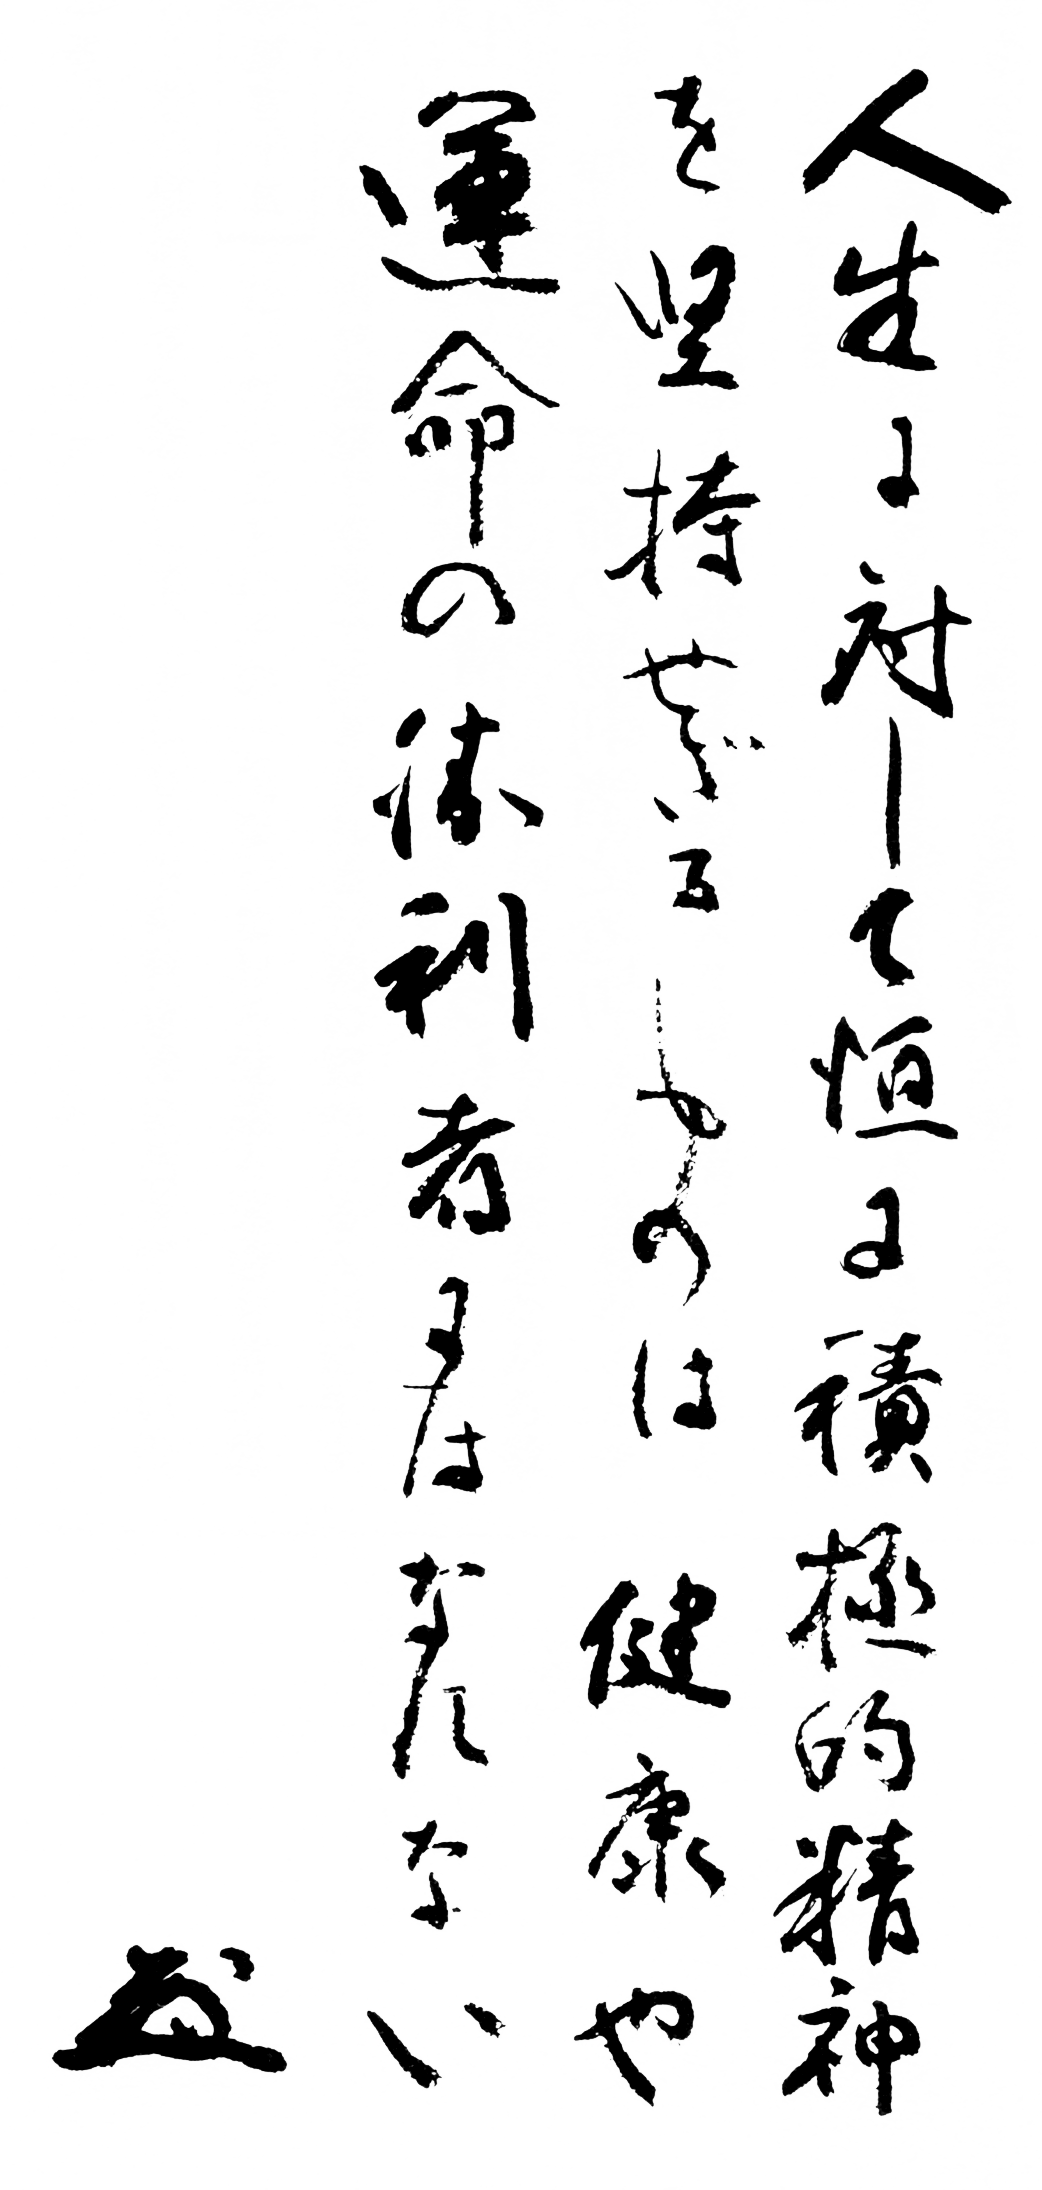 人生に対して恒に積極的精神
を堅持せざるものは健康や
運命の勝利者にはなれない